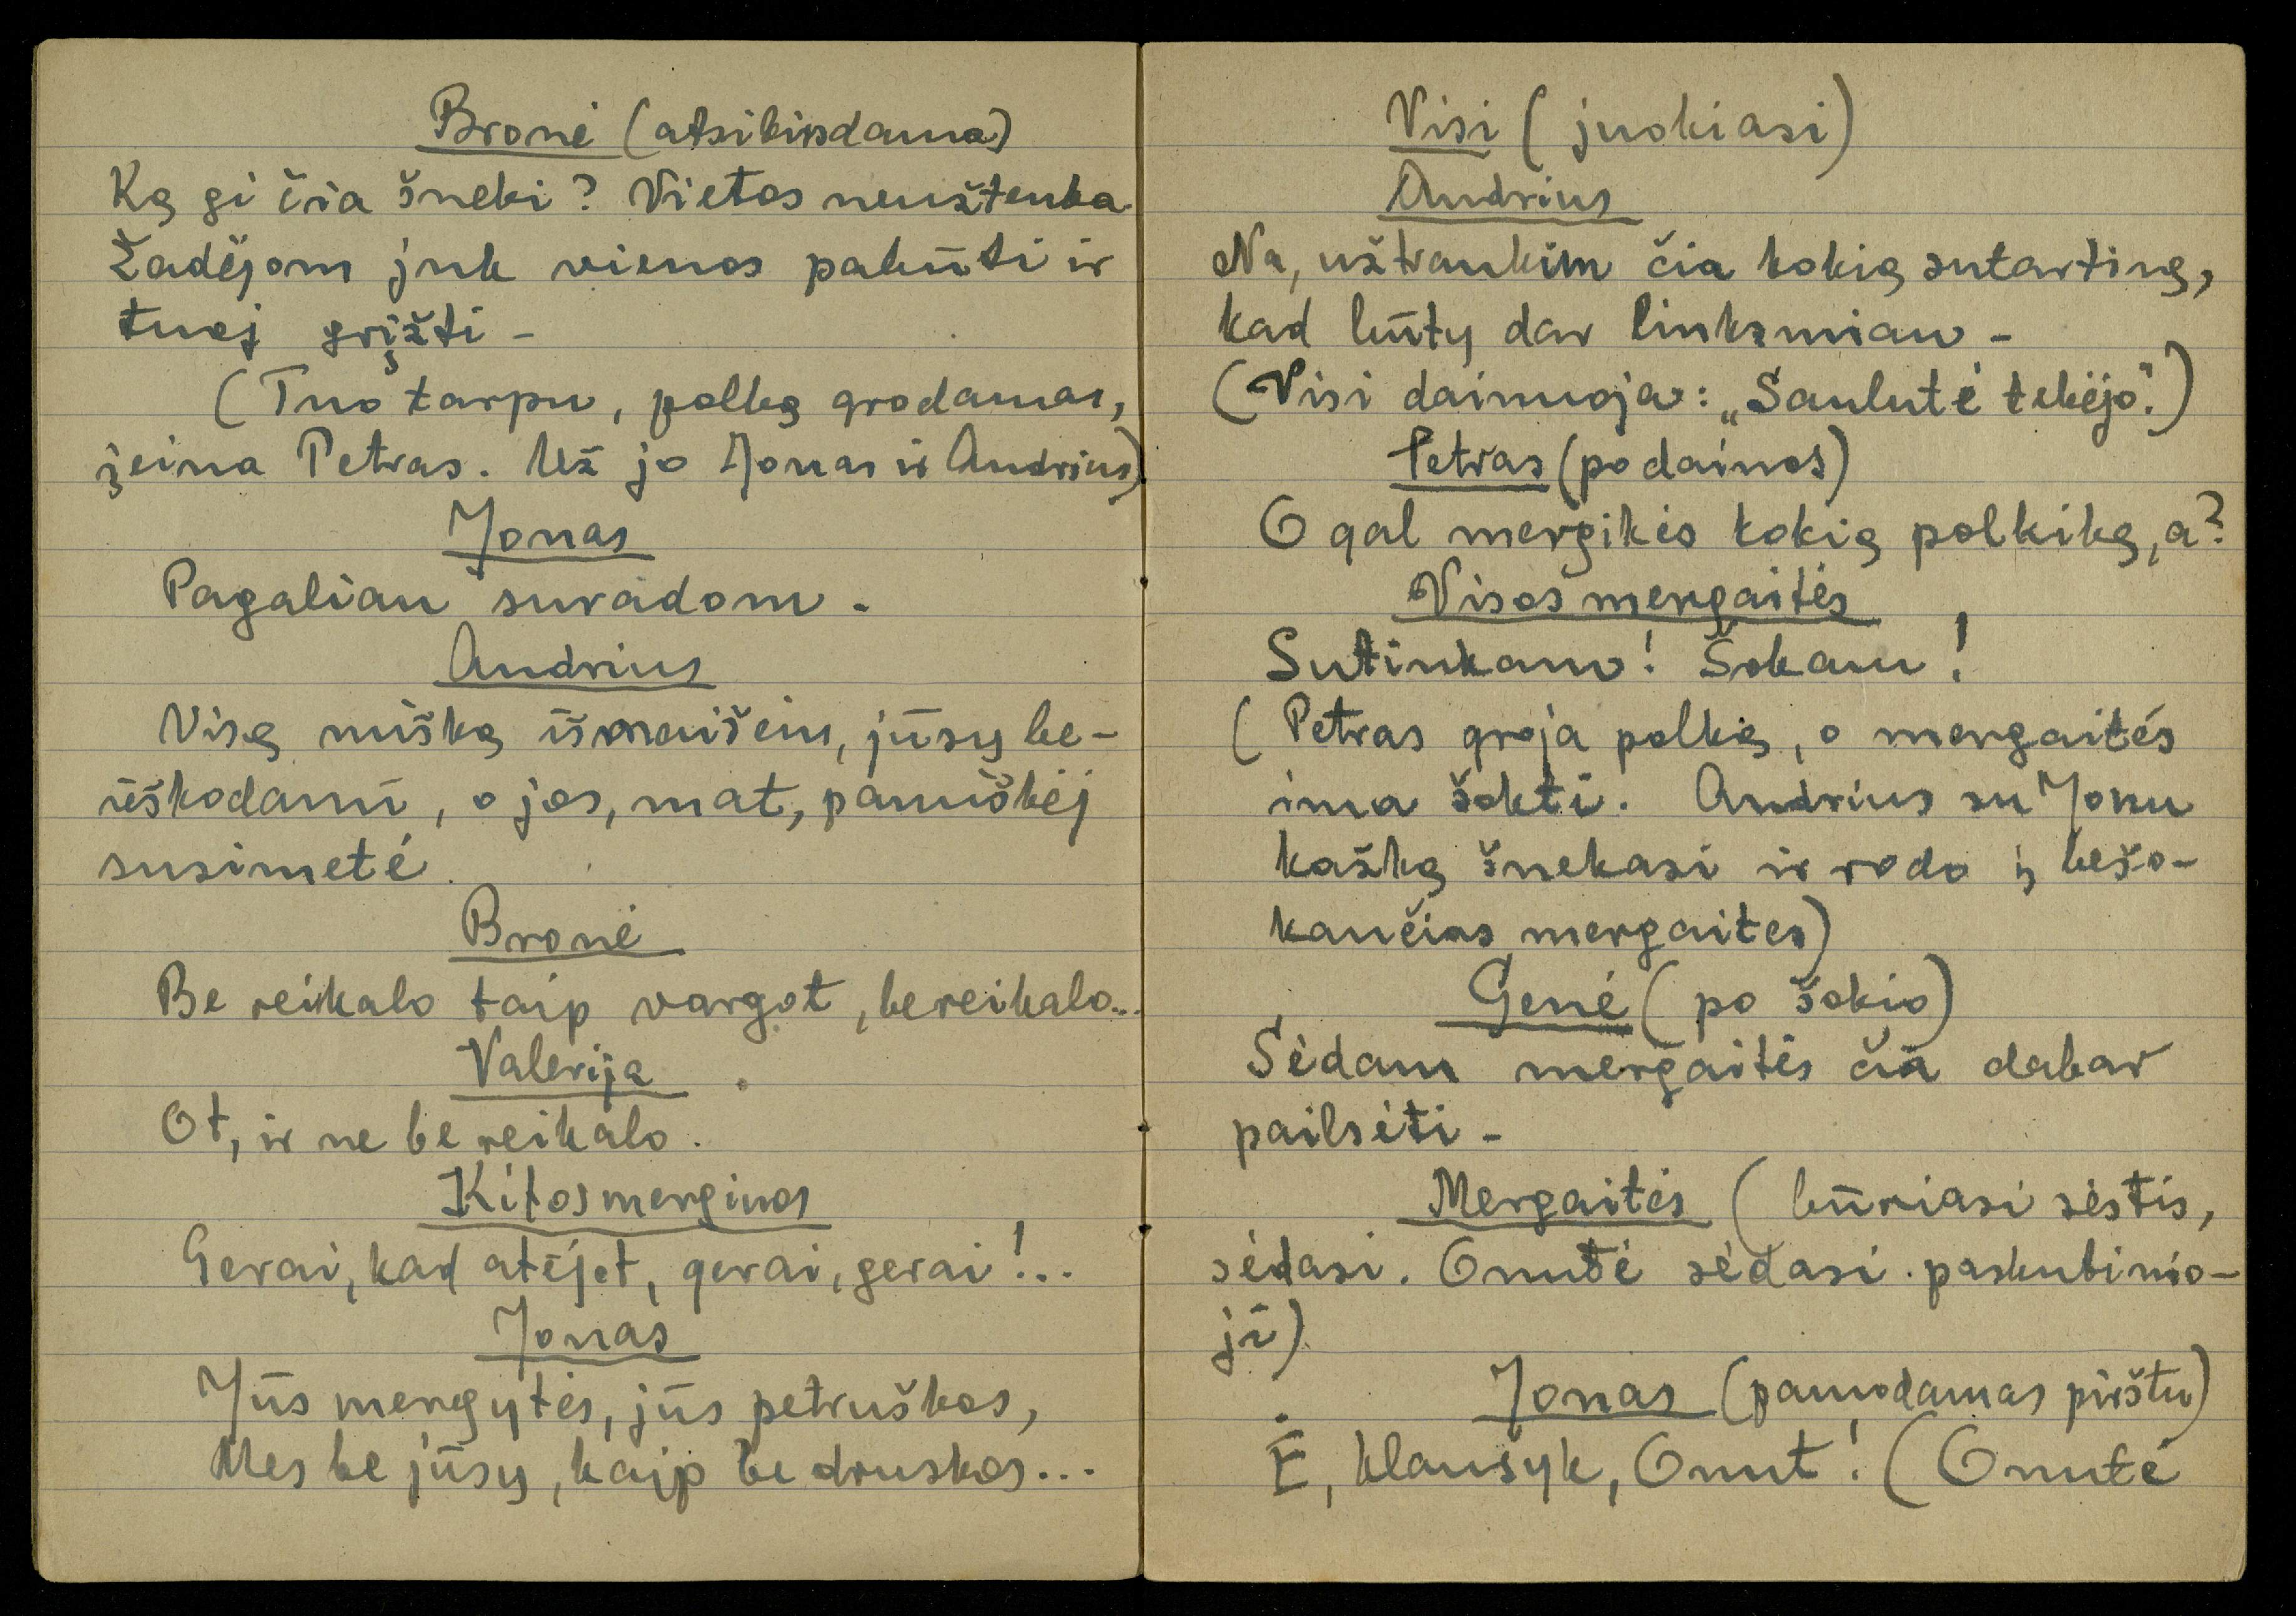 Bronė (atsikirsdama)
Ką gi čia šneki? Vietos neužtenka
Žadėjom juk vienos pabūti ir
tuoj grįžti -
(Tuo tarpu, polką grodamas,
įeina Petras. Už jo Jonas ir Andrius)
Jonas
Pagaliau suradom.
Andrius
Visą mišką išmaišėm, jūsų be-
ieškodami, o jos, mat, pamiškėj
susimetė.
Bronė
Be reikalo taip vargot, bereikalo...
Valerija
Ot, ir ne be reikalo.
Kitos merginos
Gerai, kad atėjot, gerai, gerai!..
Jonas
Jūs mergytės, jūs petruškos,
Mes be jūsų, kaip be druskos...
Visi (juokiasi)
Andrius
Na, užtraukim čia kokią sutartinę,
kad būtų dar linksmiau -
(Visi dainuoja: „Saulutė tekėjo".)
Petras (po dainos)
O gal mergikės kokią polkiką, a?
Visos mergaitės
Sutinkam! Šokam!
(Petras groja polką, o mergaitės
ima šokti. Andrius su Jonu
kažką šnekasi ir rodo į bešo-
kančias mergaites)
Genė (po šokio)
Sėdam mergaitės čia dabar
pailsėti -
Mergaitės (būriasi sėstis,
sėdasi. Onutė sėdasi paskutinio-
ji)
Jonas (pamodamas pirštu)
Ė, klausyk, Onut! (Onutė